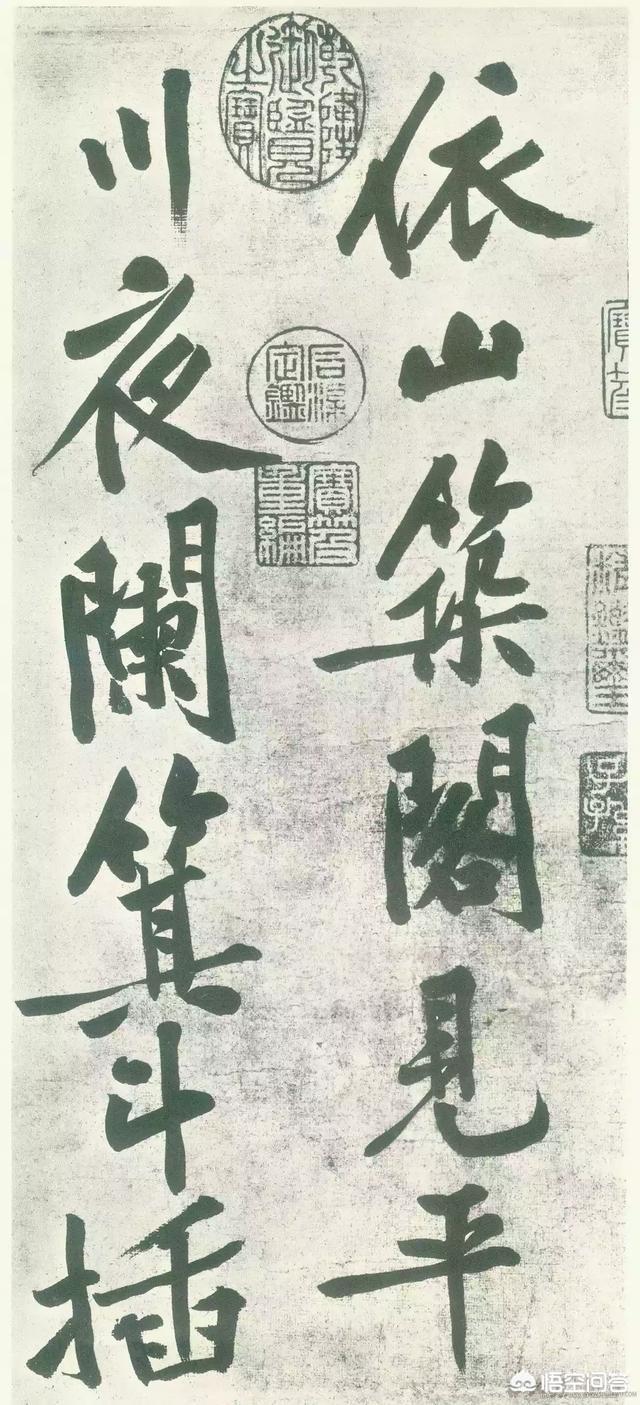 依山築閣見平
川夜闌箕斗插
乾隆御覽之寶
石渠定鑑
寶笈重編
悟空问答